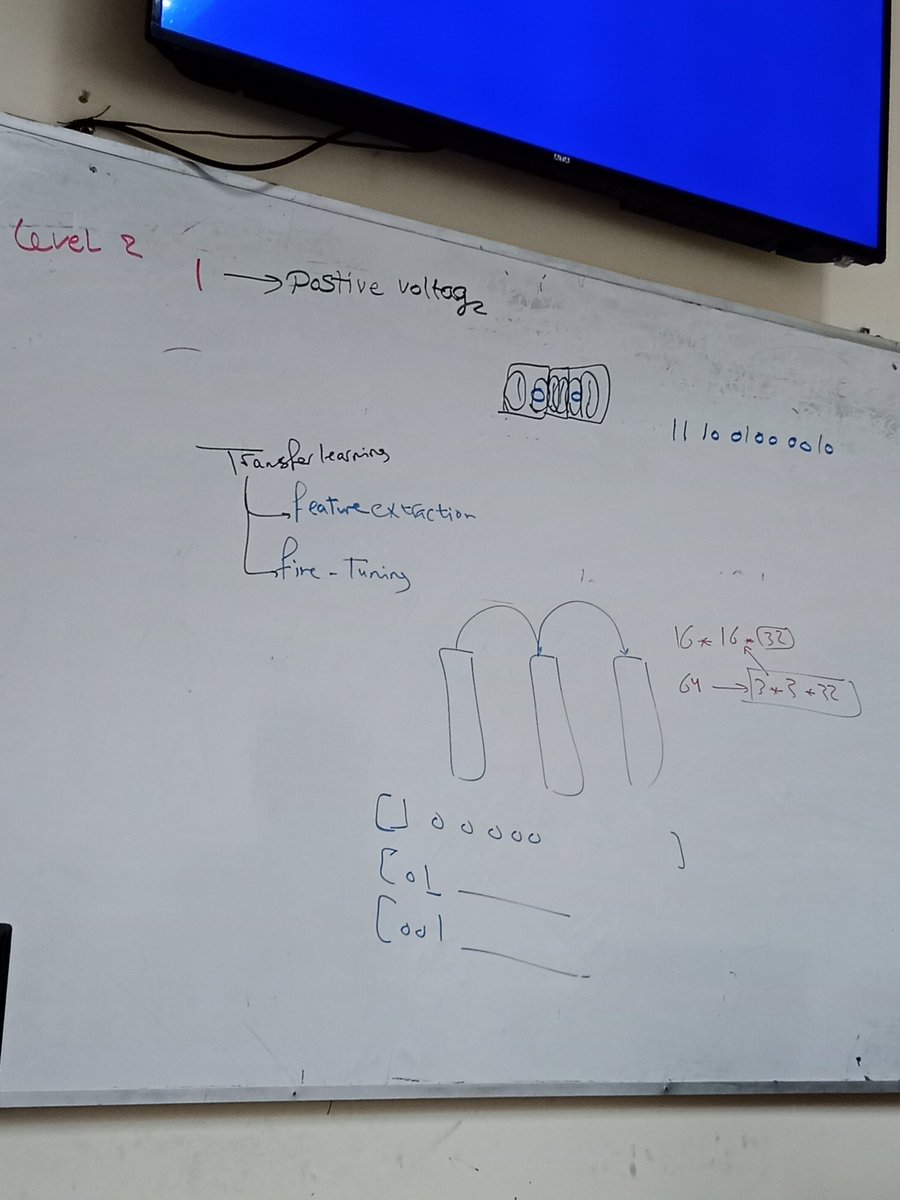 Level 2
1 → Postive voltage
11 10 0100 0010
Transfer learning
feature extraction
fine - Tuning
16 * 16 * 32
64 → 3 * 3 * 32
[1 0 0 0 0 0 ]
[01
[001